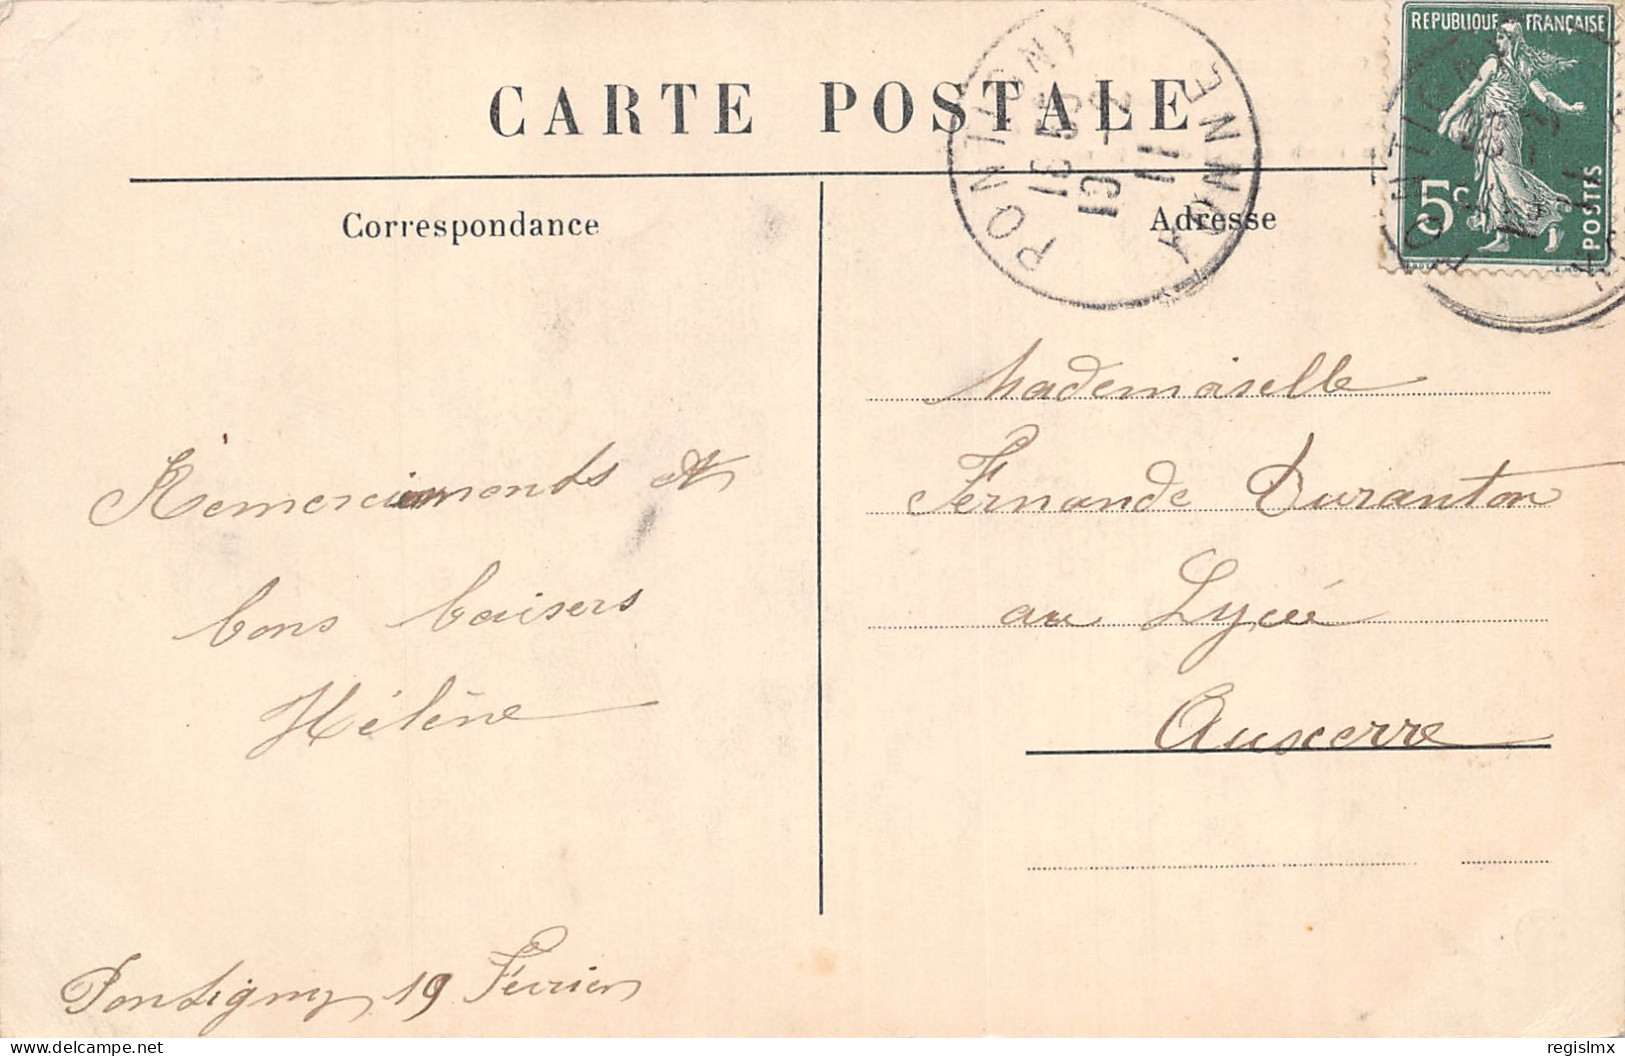 CARTE POSTALE
Correspondance
Remerciements et
bons baisers
Hélène
Pontigny 19 Février
PONTIGNY
YONNE
19 -2
11
REPUBLIQUE FRANÇAISE
5c
POSTES
Adresse
Mademoiselle
Fernande Duranton
au Lycée
Auxerre
www.delcampe.net
regislmx